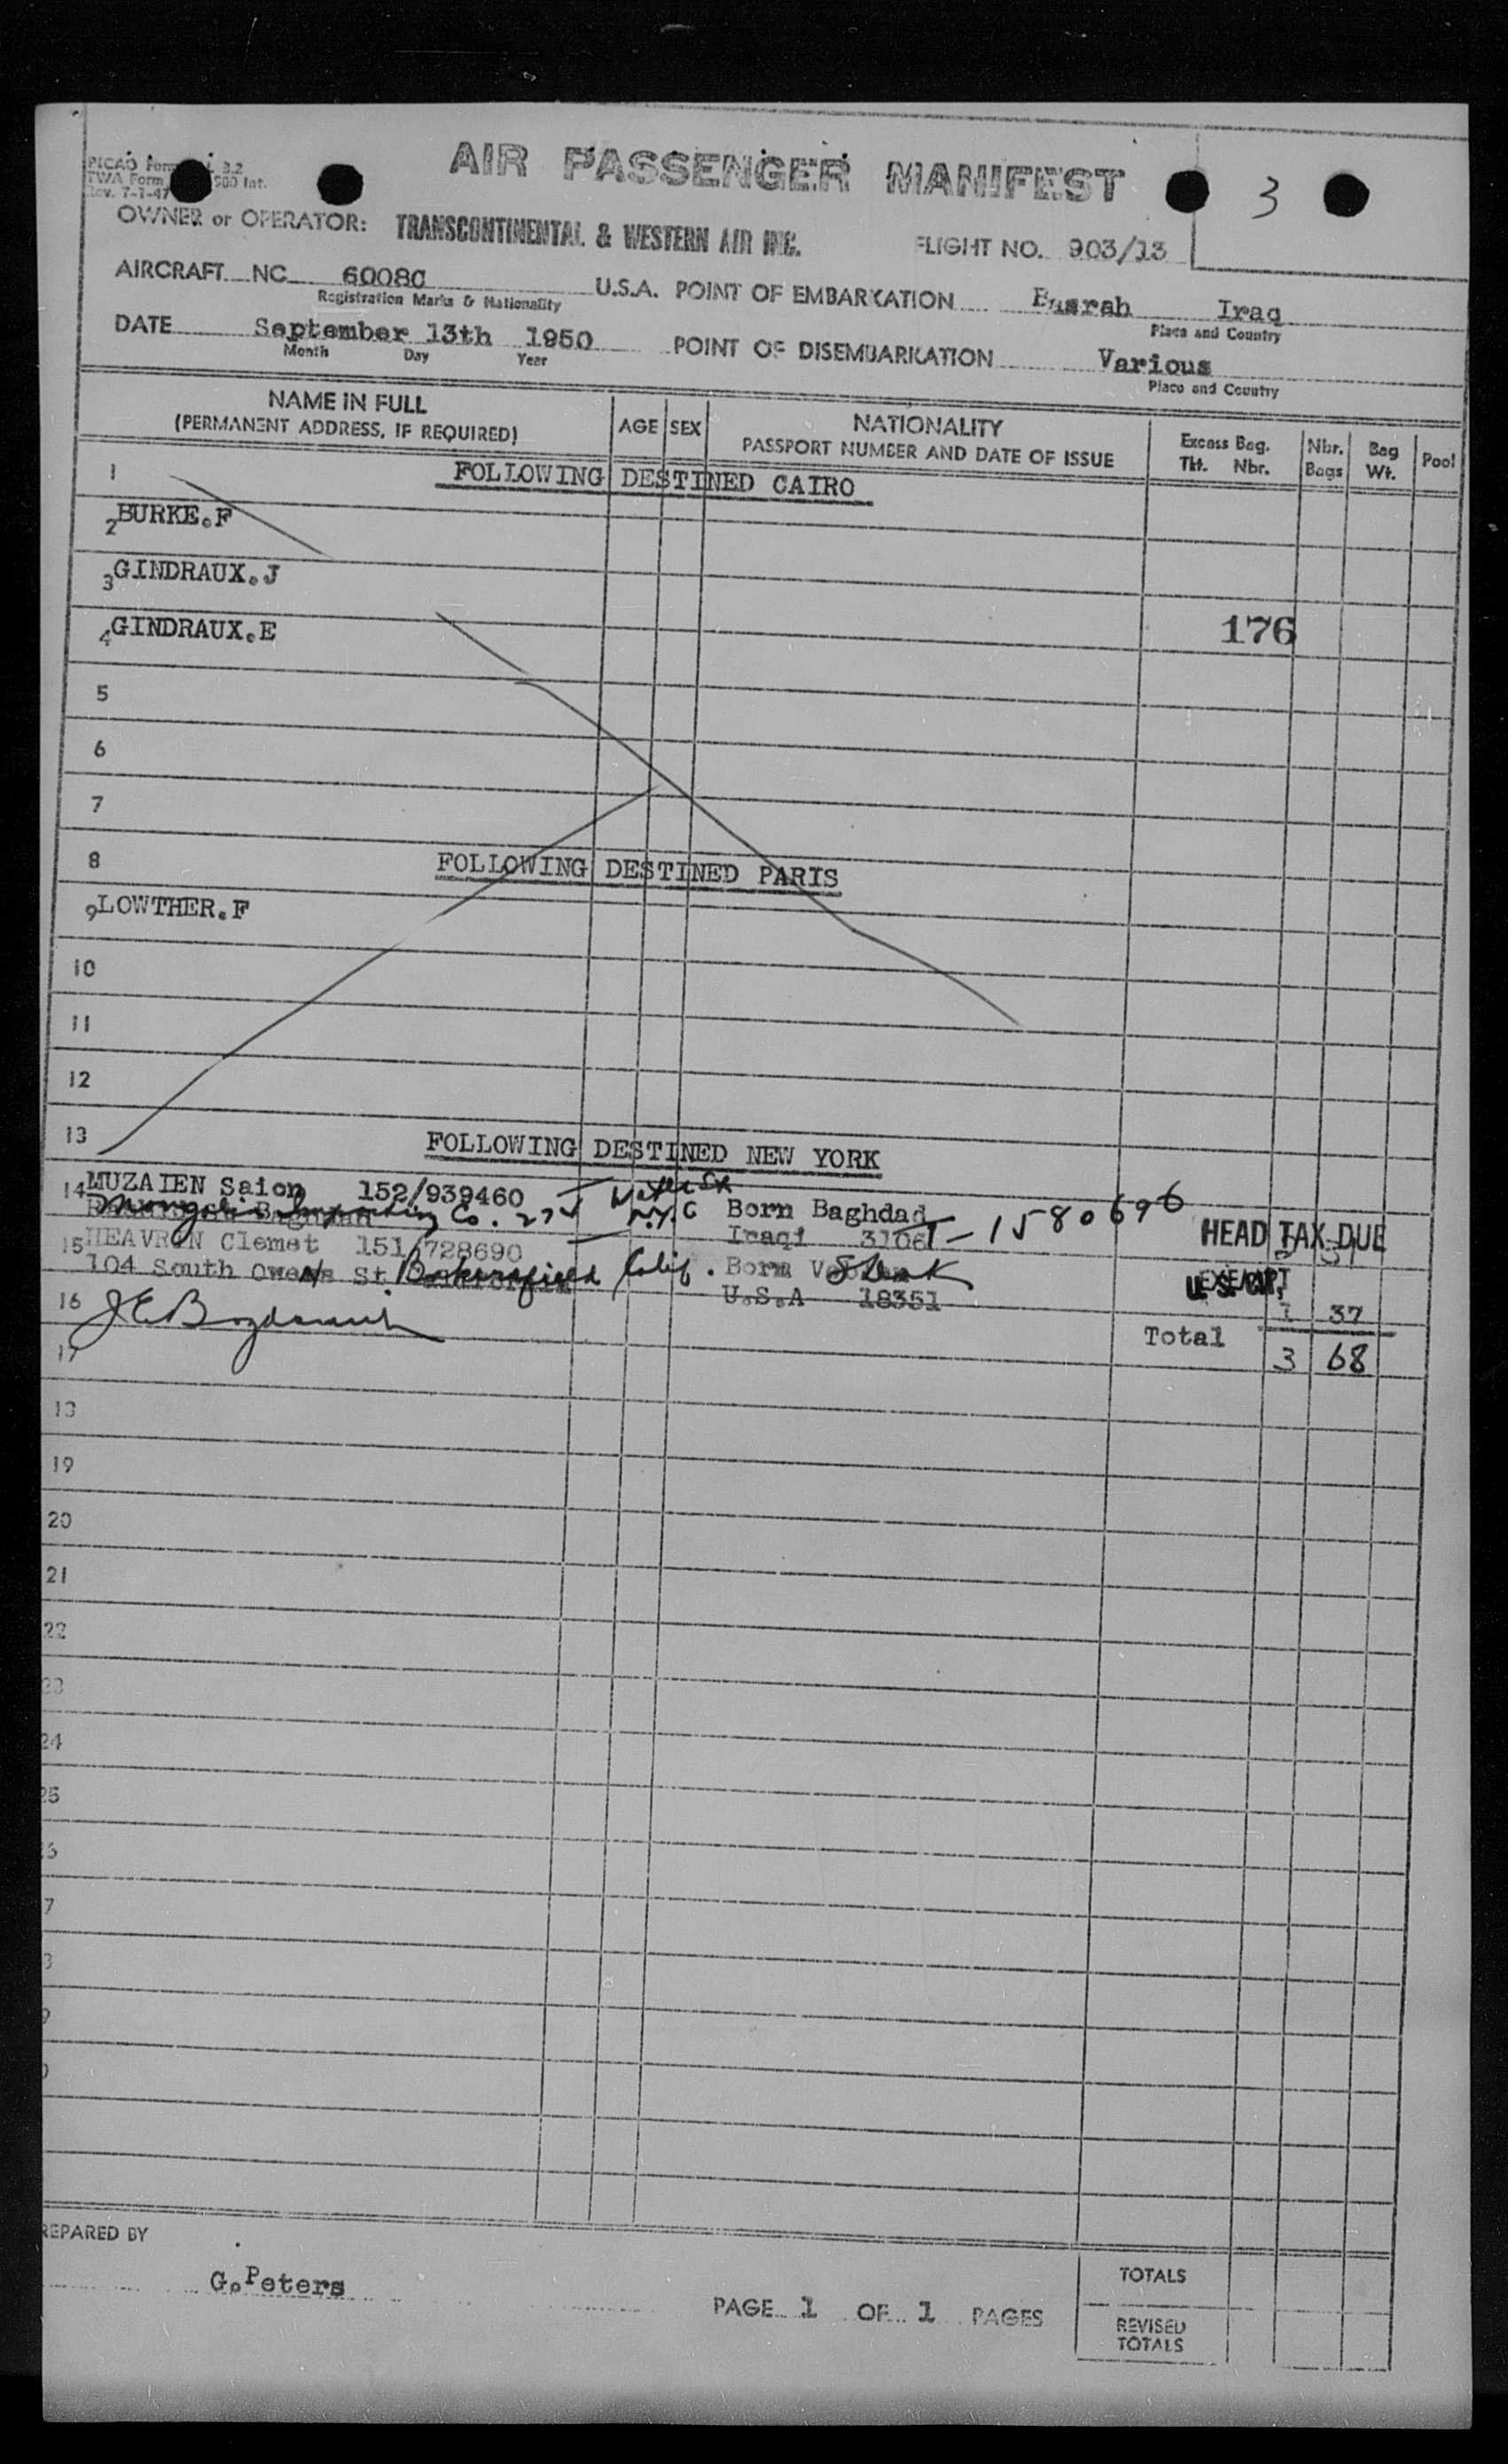 AIR PASSENGER MANIFEST
3
TWA Form 500 Int.
Rev. 7-1-47
OWNER or OPERATOR: TRANSCONTINENTAL & WESTERN AIR INC. FLIGHT NO. 903/13
AIRCRAFT NC 60080 U.S.A. POINT OF EMBARKATION Busrah Iraq
Registration Marks & Nationality Place and Country
DATE September 13th 1950 POINT OF DISEMBARKATION Various
Month Day Year Place and Country
NAME IN FULL AGE SEX NATIONALITY Excess Bag. Nbr. Bag Pool
(PERMANENT ADDRESS, IF REQUIRED) PASSPORT NUMBER AND DATE OF ISSUE Tkt. Nbr. Bags Wt.
1 FOLLOWING DESTINED CAIRO
2 BURKE.F
3 GINDRAUX.J
4 GINDRAUX.E 176
5
6
7
8 FOLLOWING DESTINED PARIS
9 LOWTHER.F
10
11
12
13 FOLLOWING DESTINED NEW YORK
14 MUZAIEN Saion 152/939460 Water St
Importing Co. N.Y.C Born Baghdad T-1580696 HEAD TAX DUE
Iraqi 3106
15 HEAVRON Clemet 151/728690
104 South Owens St Bakersfield Calif. Born
U.S.A 18351
16 1 37
Total 3 68
17
18
19
20
21
22
23
24
25
6
7
8
9
0
PREPARED BY
G.Peters
PAGE 1 OF 1 PAGES
TOTALS
REVISED
TOTALS